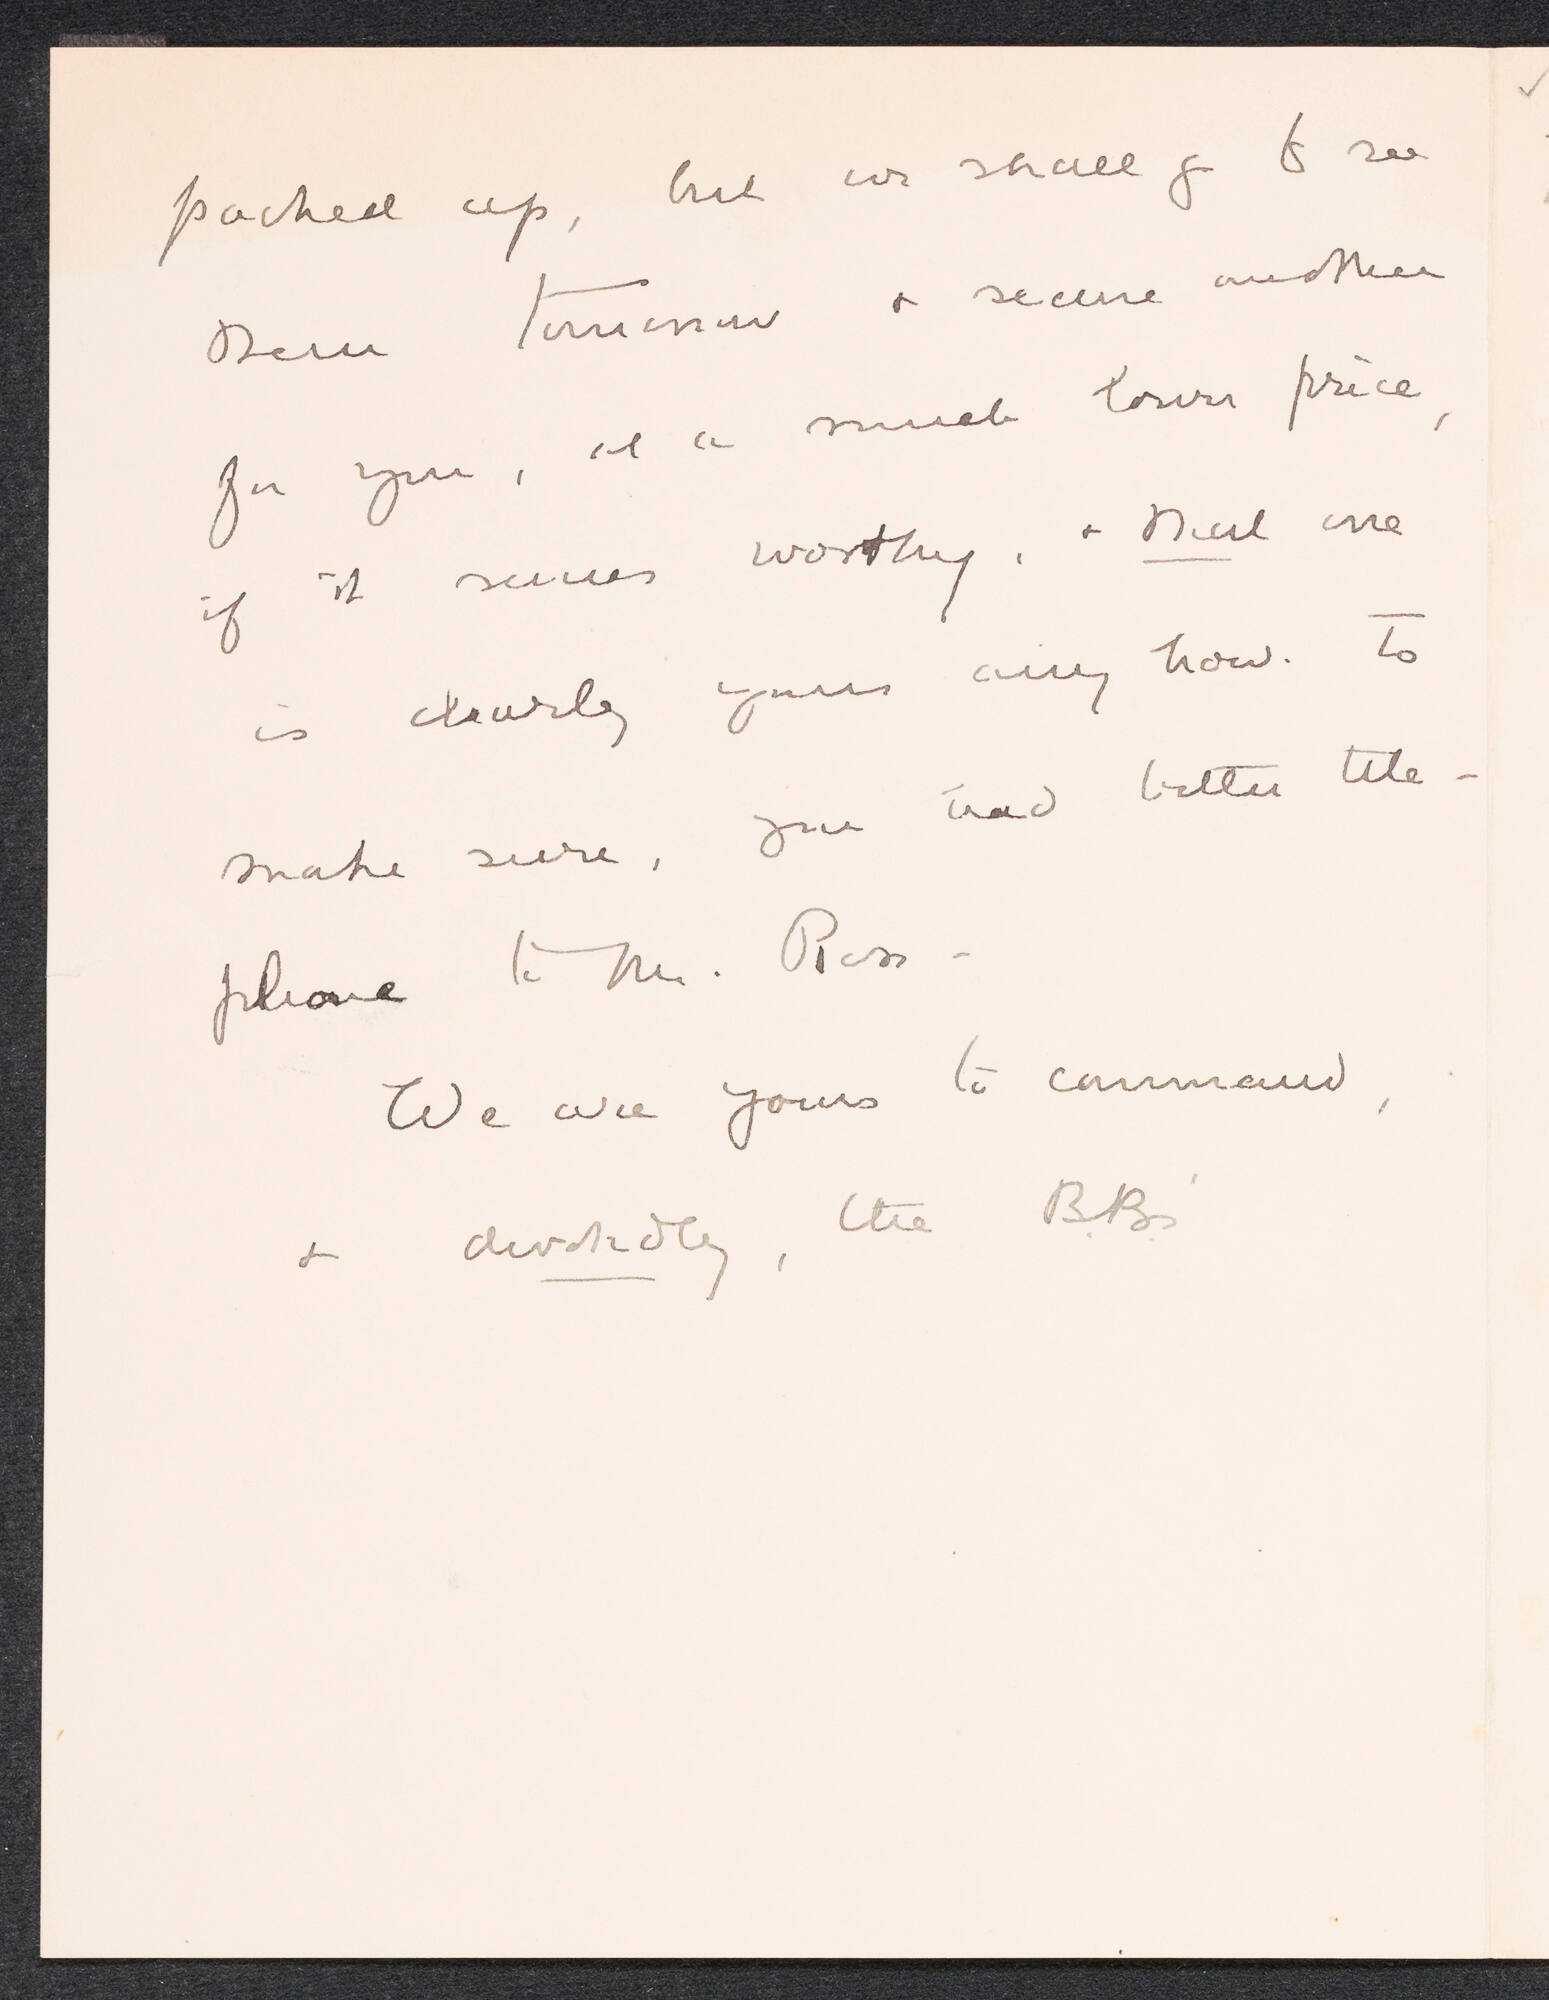 packed up, but we shall go to see
them tomorrow & secure another
for you, at a much lower price,
if it seems worthy, & that one
is clearly yours any how. To
make sure, you had better tele-
phone to Mr. Ross -
We are yours to command,
& devotedly, the B.B.s'